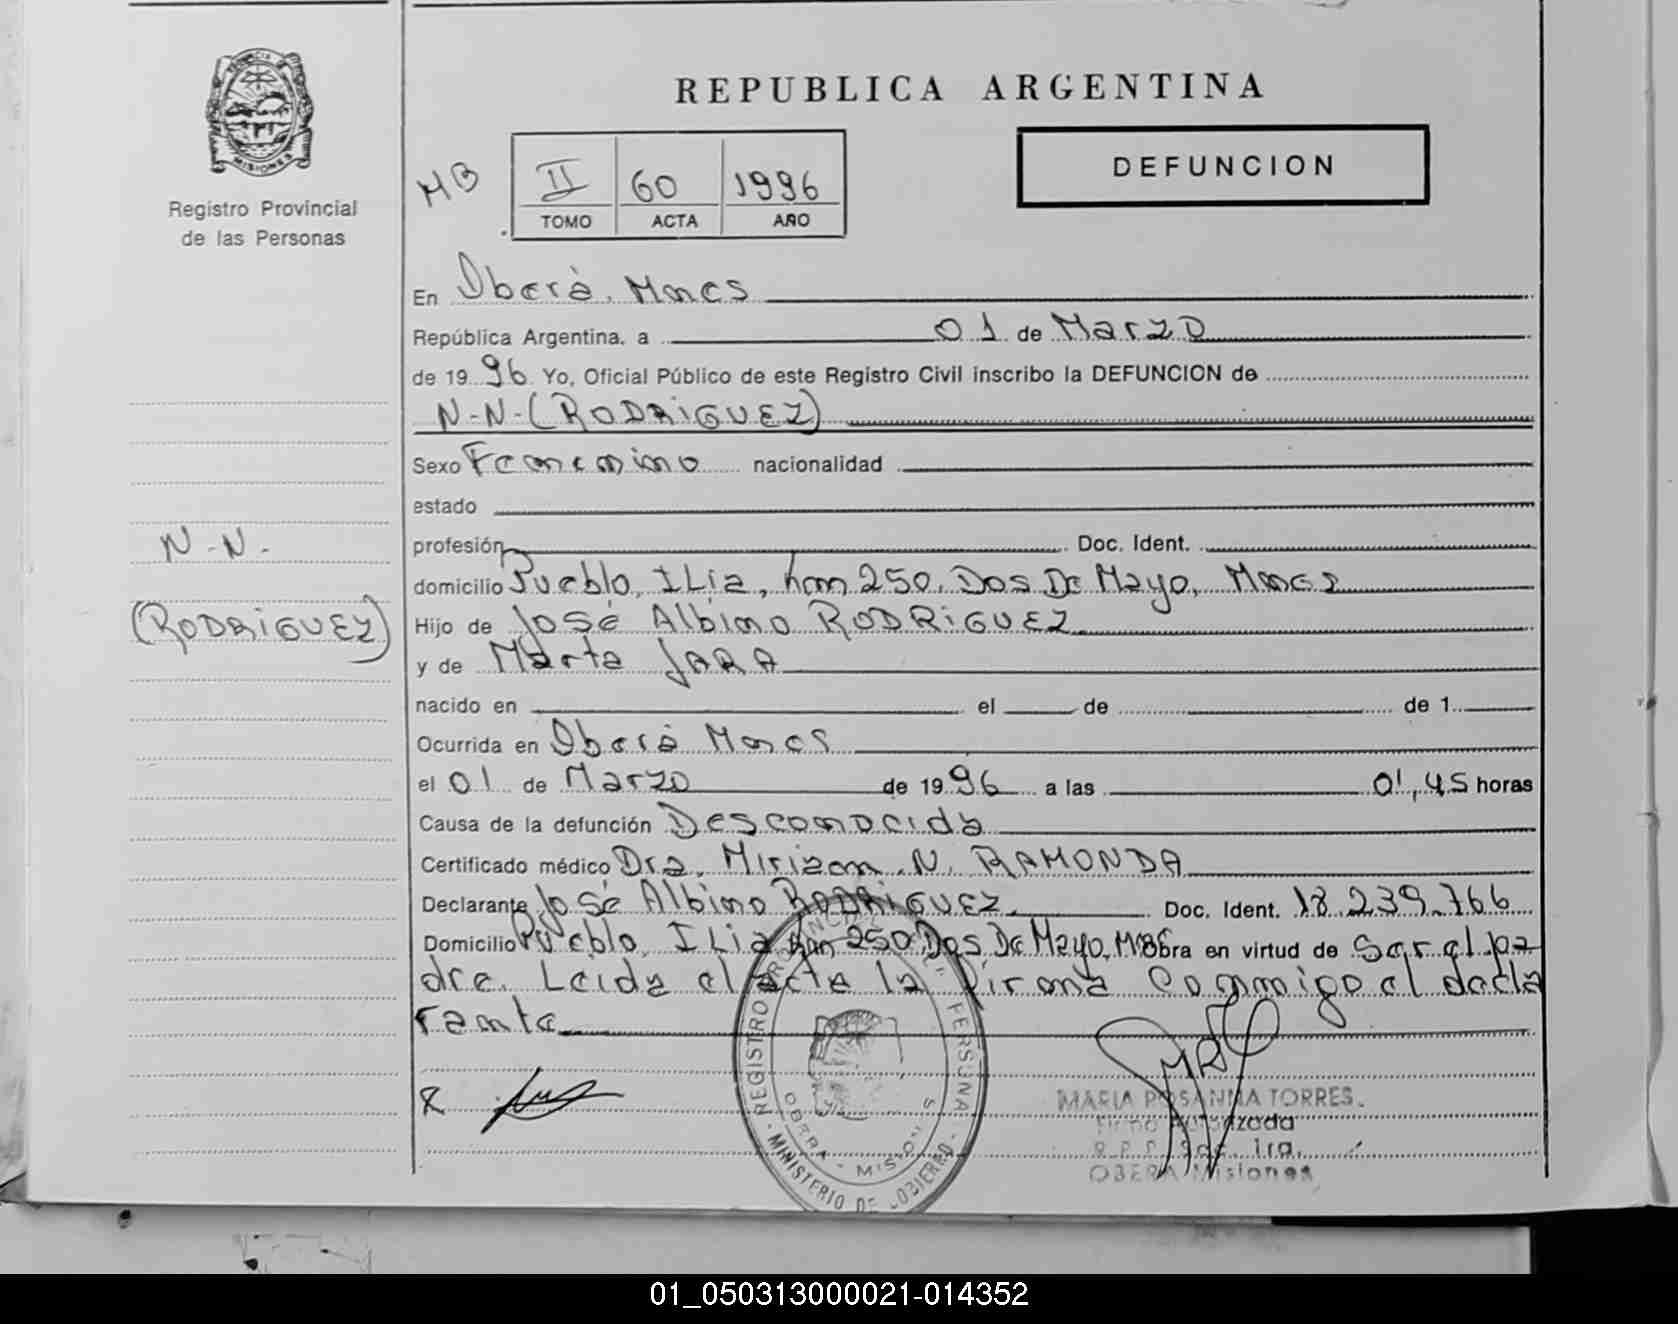 PROVINCIA DE
MISIONES
Registro Provincial
de las Personas
REPUBLICA ARGENTINA
DEFUNCION
MB
II 60 1996
TOMO ACTA AÑO
En Oberá, Mnes
República Argentina, a 01 de Marzo
de 1996 Yo, Oficial Público de este Registro Civil inscribo la DEFUNCION de
N-N-(RODRIGUEZ)
Sexo Femenino nacionalidad
estado
N-N-
profesión Doc. Ident.
domicilio Pueblo ILia, km 250, Dos De Mayo, Mnes
(RODRIGUEZ)
Hijo de José Albino RODRIGUEZ
y de Marta JARA
nacido en el de de 1
Ocurrida en Oberá Mnes
el 01 de Marzo de 1996 a las 01,45 horas
Causa de la defunción Desconocida
Certificado médico Dra. Mirian N. RAMONDA
Declarante José Albino RODRIGUEZ Doc. Ident. 18.239.766
Domicilio Pueblo ILia km 250 Dos De Mayo, Mnes Obra en virtud de Ser el pa
dre. Leida el acta la firma Conmigo el decla
rante
MARIA ROSANNA TORRES
Firma Autorizada
R.P.P. Sec. 1ra.
OBERA Misiones
REGISTRO PROVINCIAL DE LAS PERSONAS
OBERA - MISIONES
- MINISTERIO DE GOBIERNO -
01_050313000021-014352